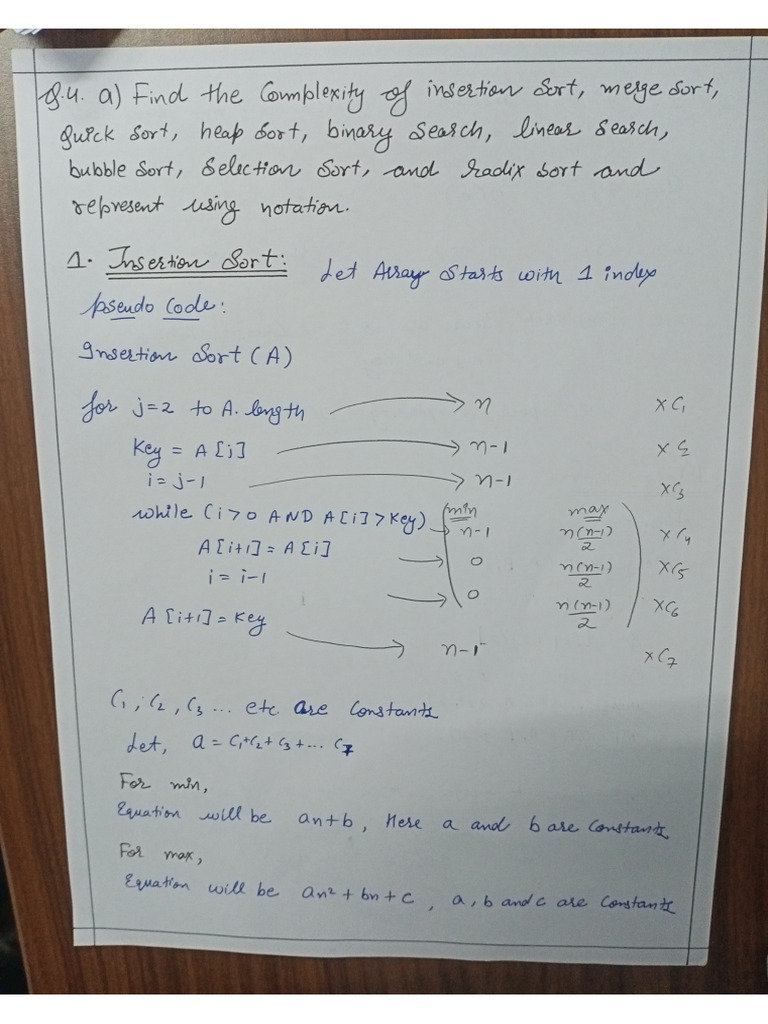 Q.4. a) Find the Complexity of insertion Sort, merge Sort,
quick sort, heap sort, binary search, linear search,
bubble sort, selection sort, and radix sort and
represent using notation.
1. Insertion Sort: Let Array Starts with 1 index
Pseudo Code:
Insertion Sort (A)
for j=2 to A. length → n ×C1
Key = A[j] → n-1 ×C2
i = j-1 → n-1 ×C3
min max
while (i>0 AND A[i]>Key) → n-1 n(n-1)/2 ×C4
A[i+1] = A[i] → 0 n(n-1)/2 ×C5
i = i-1 → 0 n(n-1)/2 ×C6
A[i+1] = Key → n-1 ×C7
C1, C2, C3 ... etc are Constants
Let, a = C1+C2+C3+... C7
For min,
Equation will be an+b, Here a and b are constants
For max,
Equation will be an²+bn+c, a, b and c are constants